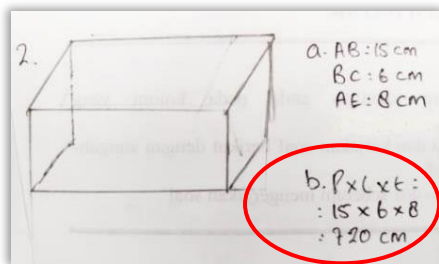 2.
a. AB : 15 cm
BC : 6 cm
AE : 8 cm
b. P x L x t :
: 15 x 6 x 8
: 720 cm